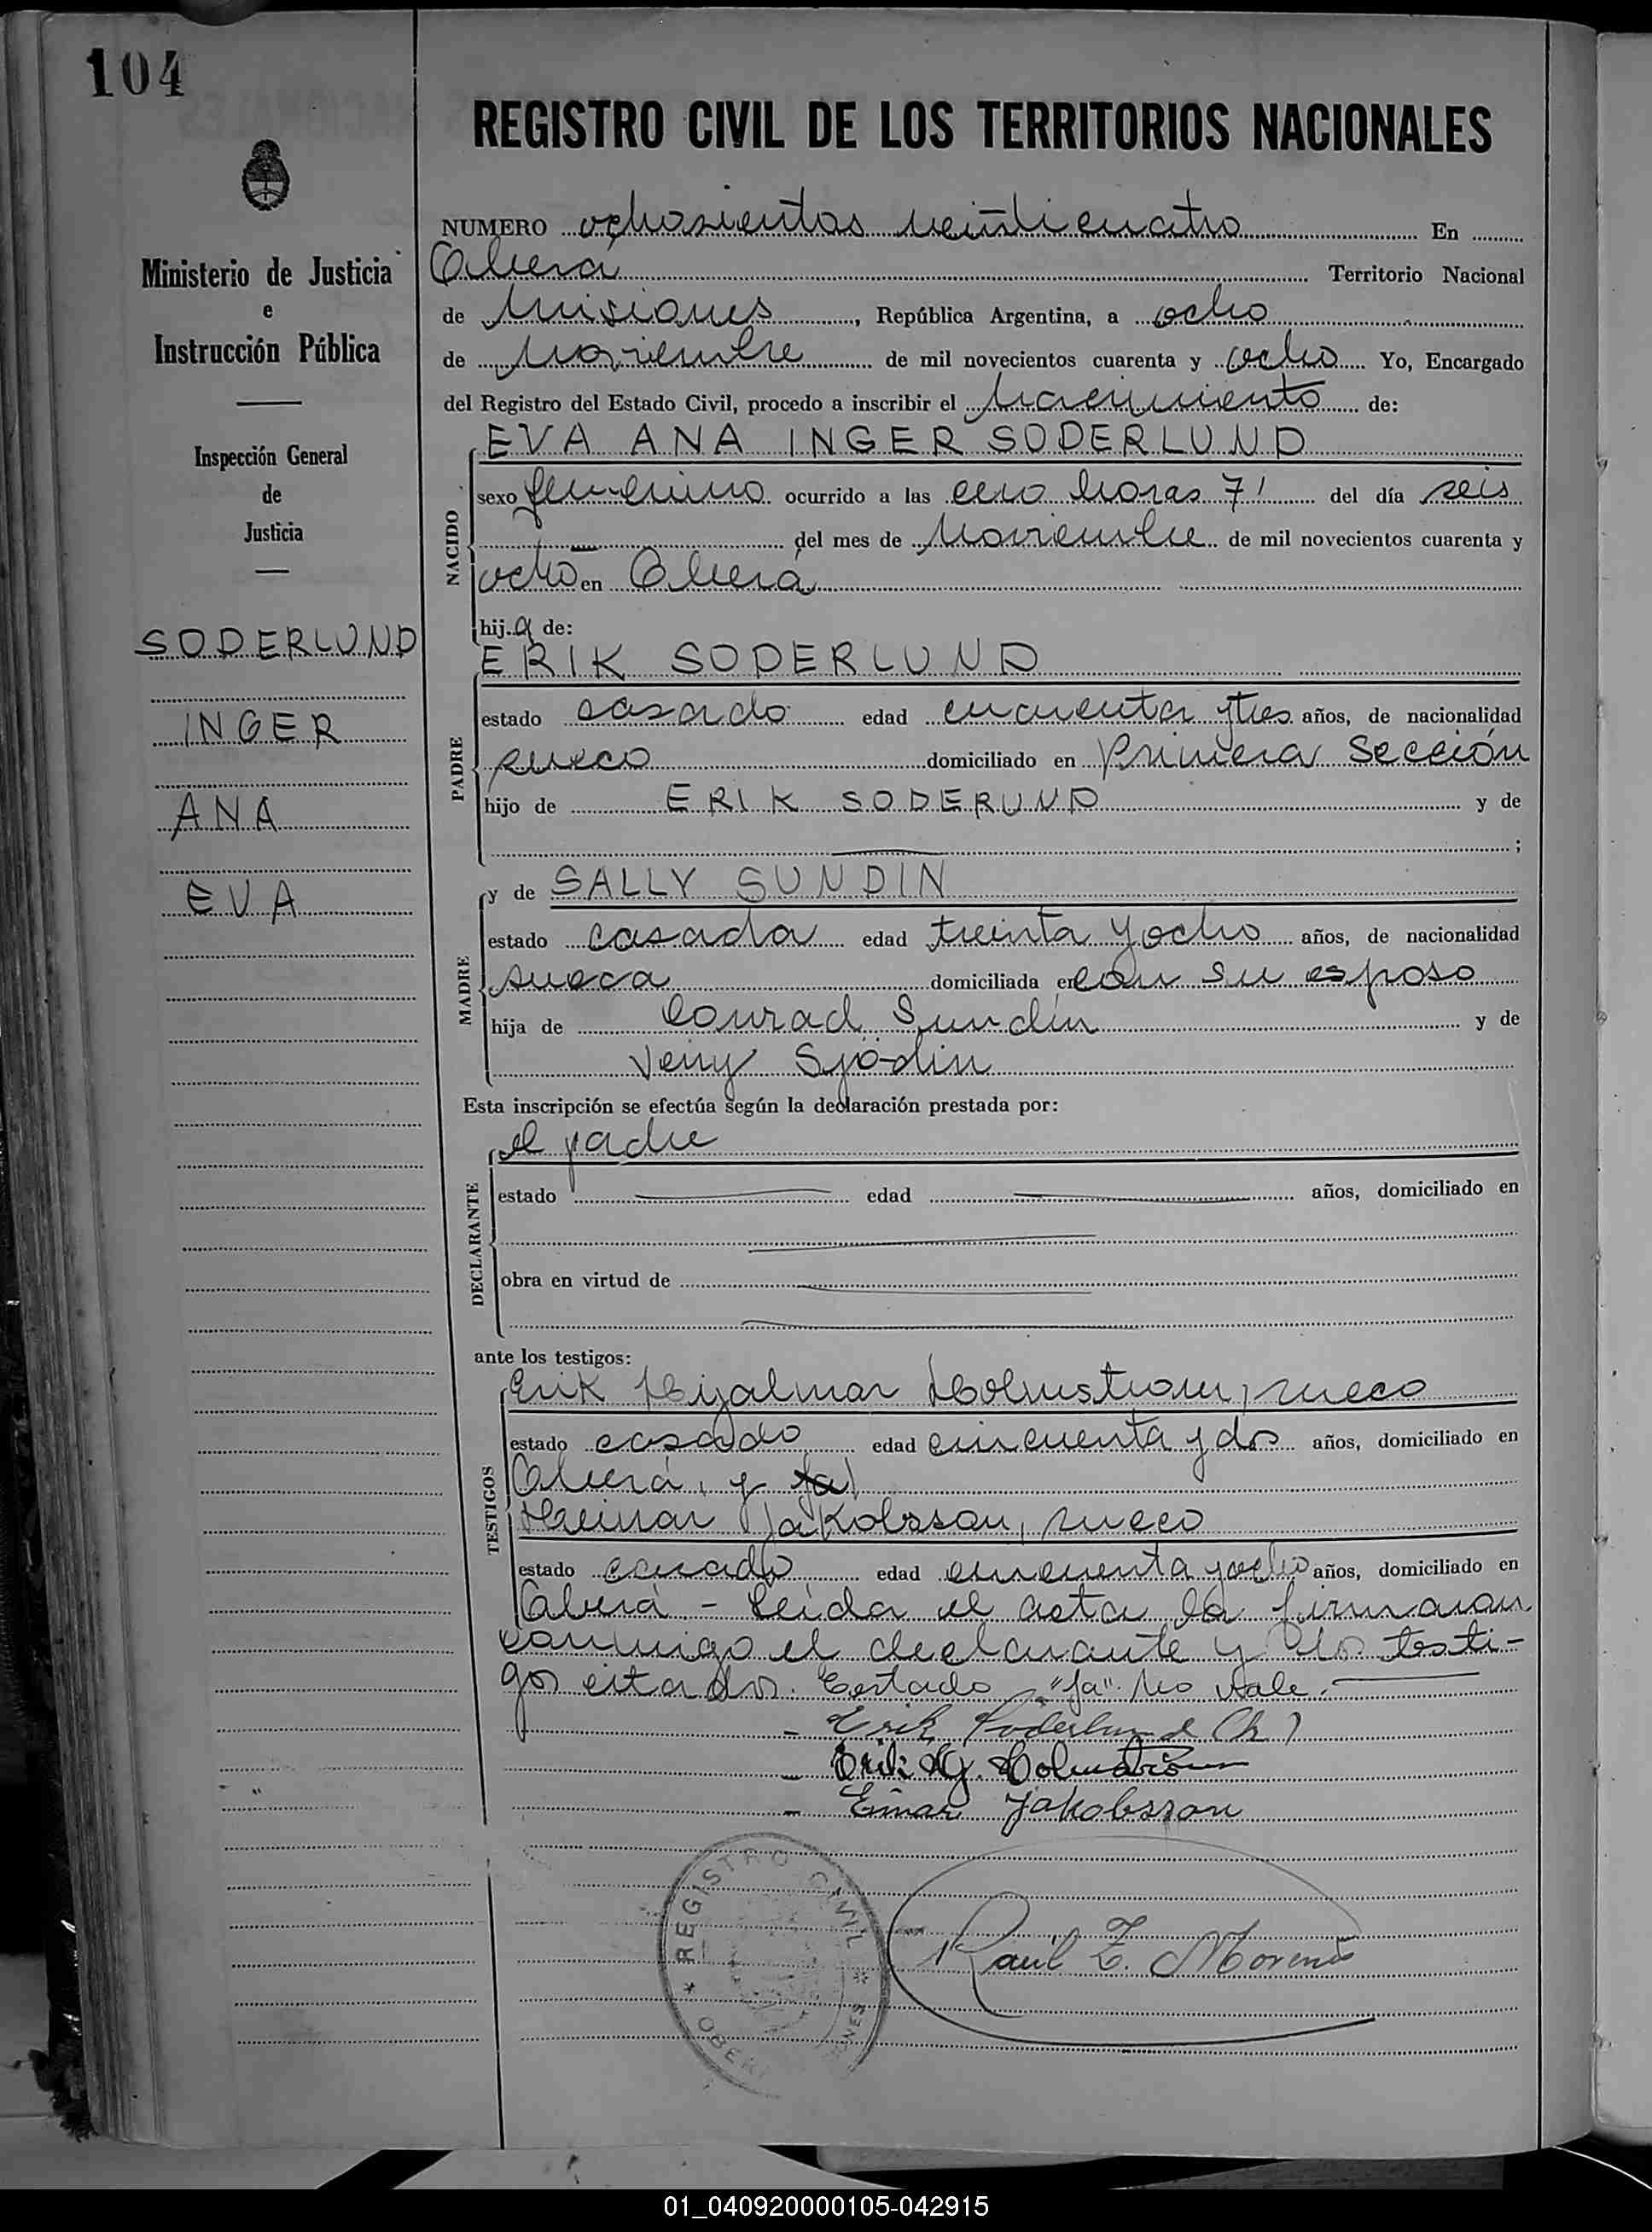 104
REGISTRO CIVIL DE LOS TERRITORIOS NACIONALES
Ministerio de Justicia
e
Instrucción Pública
Inspección General
de
Justicia
SODERLUND
INGER
ANA
EVA
NUMERO ochosientos veinticuatro En
Oberá Territorio Nacional
de Misiones, República Argentina, a ocho
de Noviembre de mil novecientos cuarenta y ocho Yo, Encargado
del Registro del Estado Civil, procedo a inscribir el Nacimiento de:
NACIDO
EVA ANA INGER SODERLUND
sexo femenino ocurrido a las cero horas 7' del día seis
del mes de Noviembre de mil novecientos cuarenta y
ocho en Oberá
hija de:
PADRE
ERIK SODERLUND
estado casado edad cuarenta y tres años, de nacionalidad
sueco domiciliado en Primera Sección
hijo de ERIK SODERUND y de
;
MADRE
y de SALLY SUNDIN
estado casada edad treinta y ocho años, de nacionalidad
sueca domiciliada en con su esposo
hija de Conrad Sundin y de
Jeny Sjödin
Esta inscripción se efectúa según la declaración prestada por:
DECLARANTE
el padre
estado edad años, domiciliado en
obra en virtud de
ante los testigos:
TESTIGOS
Erik Hijalmar Holmstrom, sueco
estado casado edad cincuenta y dos años, domiciliado en
Oberá, y Ja
Heinar Jakobsson, sueco
estado casado, edad cincuenta y ocho años, domiciliado en
Oberá - Leída el acta la firmaron
conmigo el declarante y los testi-
gos citados. Testado "Ja" No vale.
- Erik Soderlund (h)
- Erik Hj. Holmström
- Einar Jakobsson
REGISTRO CIVIL
OBERÁ
Raúl Z. Moreno
01_040920000105-042915